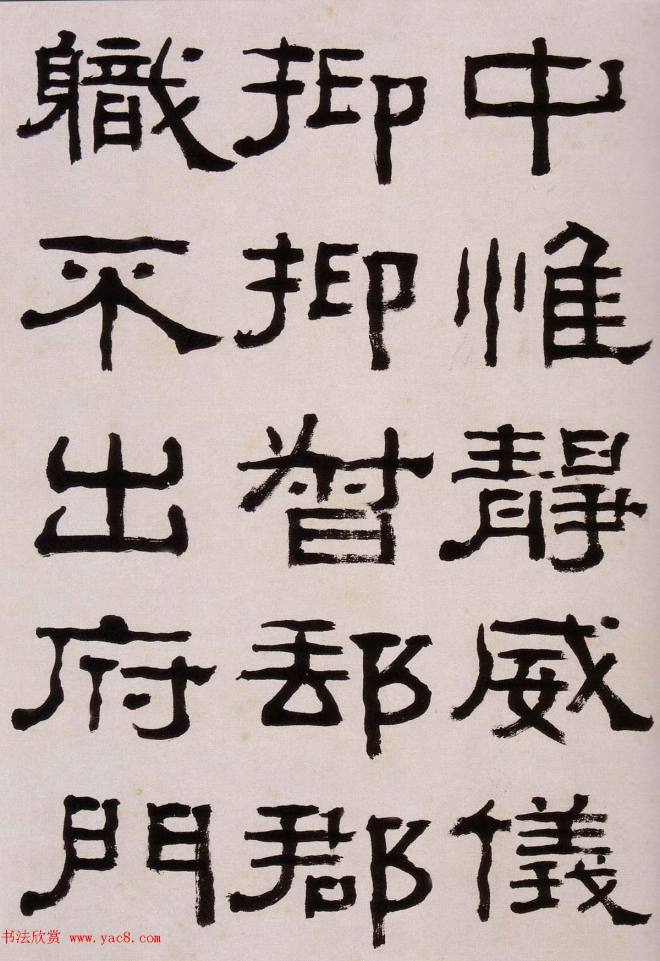 中惟靜威儀
抑抑督郵郡
職不出府門
书法欣赏 www.yac8.com